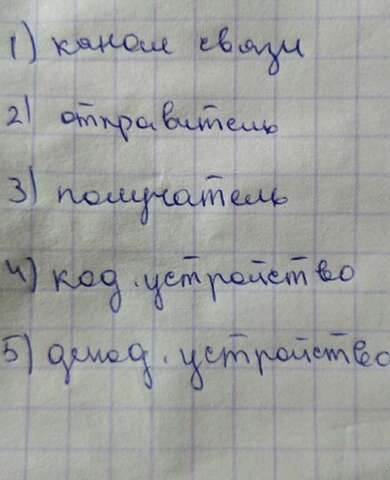 1) канал связи
2) отправитель
3) получатель
4) код. устройство
5) декод. устройство